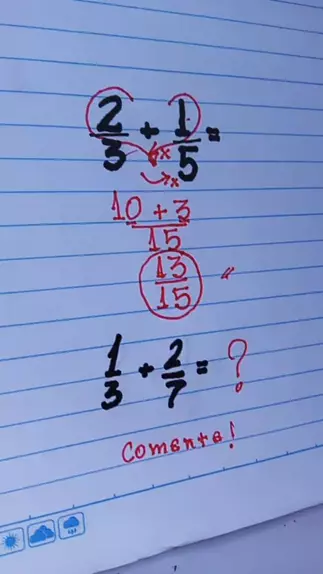 2/3 + 1/5 =
10 + 3
15
13/15 "
1/3 + 2/7 = ?
Comente!